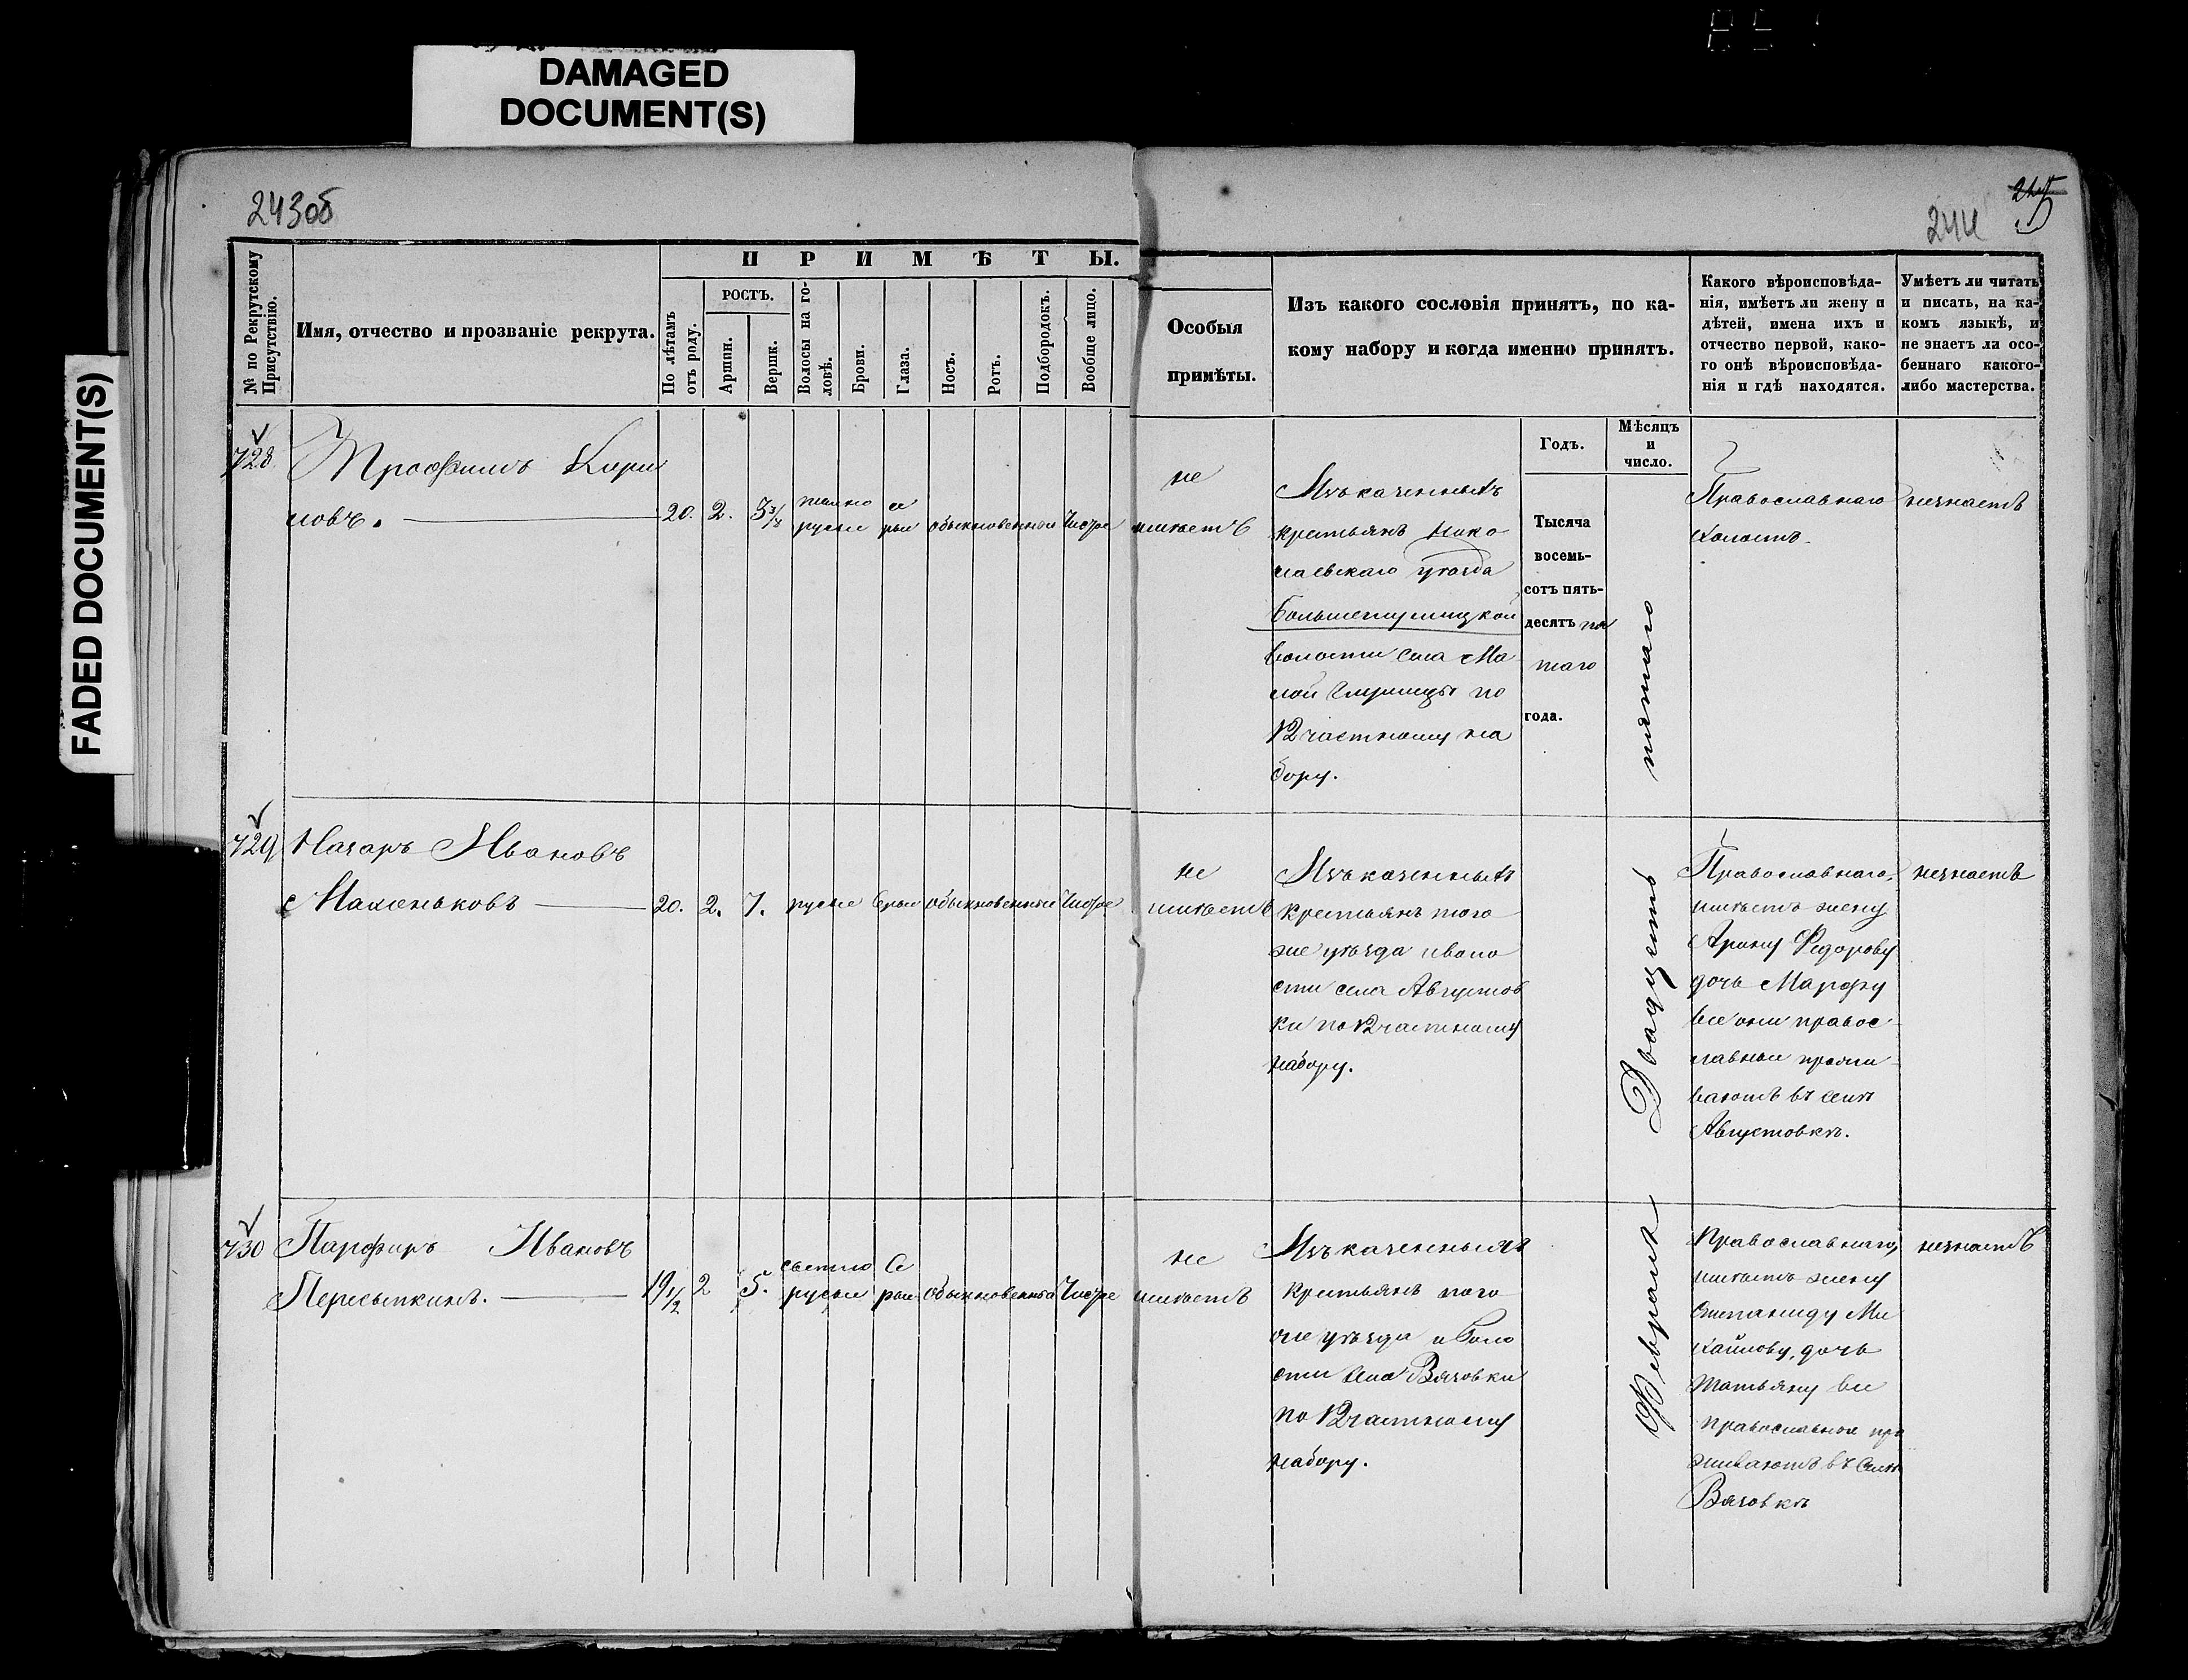 DAMAGED
DOCUMENT(S)
FADED DOCUMENT(S)
243об
244
№ по Рекрутскому
Присутствію.
Имя, отчество и прозваніе рекрута.
ПРИМѢТЫ.
По лѣтамъ
отъ роду.
РОСТЪ.
Аршин.
Вершк.
Волосы на го-
ловѣ.
Брови.
Глаза.
Носъ.
Ротъ.
Подбородокъ.
Вообще лицо.
Особыя
примѣты.
Изъ какого сословія принятъ, по ка-
кому набору и когда именно принятъ.
Какого вѣроисповѣда-
нія, имѣетъ ли жену и
дѣтей, имена ихъ и
отчество первой, како-
го онѣ вѣроисповѣда-
нія и гдѣ находятся.
Умѣетъ ли читать
и писать, на ка-
комъ языкѣ, и
не знаетъ ли осо-
беннаго какого-
либо мастерства.
Годъ.
Мѣсяцъ
и
число.
728
Трофимъ Кири
ловъ.
20. 2. 3 3/8
темно
русые
се
рые
обыкновенные
Чистое
не
имѣетъ
Изъ казенныхъ
крестьянъ Нико
лаевскаго уѣзда
Большеглушицкой
волости села Ма
лой Глушицы по
12 частному на
бору.
Тысяча
восемь-
сотъ пять-
десятъ пя
таго
года.
Православнаго
холостъ.
незнаетъ
729
Назаръ Ивановъ
Маженьковъ
20. 2. 7. русые Серые обыкновенные Чистое
не
имѣетъ
Изъ казенныхъ
крестьянъ того
же уѣзда и воло
сти села Августов
ки по 12 частному
набору.
Православнаго,
имѣетъ жену
Арину Федорову
дочь Марфу
все они правос
лавные прожи
ваютъ въ селѣ
Августовкѣ.
незнаетъ
730
Парфиръ Ивановъ
Пересыпкинъ.
19 1/2 2 5.
светло
русые
Се
рые
Обыкновенные
Чистое
не
имѣетъ
Изъ казенныхъ
крестьянъ того
же уѣзда и воло
сти села Вязовки
по 12 частному
набору.
Февраля Двадцать пятаго
Православнаго,
имѣетъ жену
Степаниду Ми
хайлову, дочь
Татьяну все
православные про
живаютъ въ селѣ
Вязовкѣ
незнаетъ